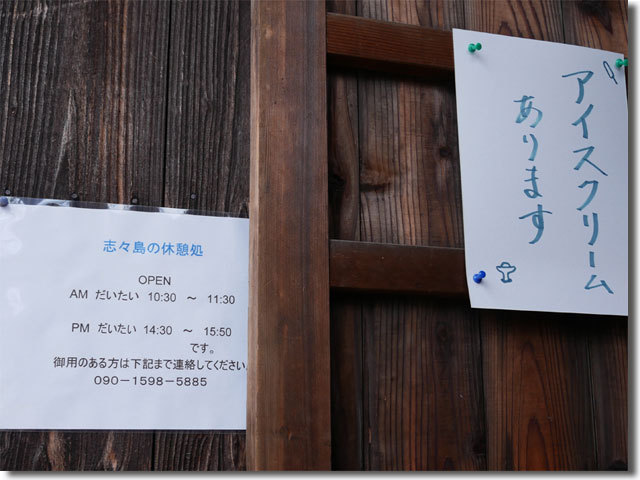 志々島の休憩処
OPEN
AM だいたい 10:30 ～ 11:30
PM だいたい 14:30 ～ 15:50
です。
御用のある方は下記まで連絡してください。
090－1598－5885
アイスクリーム
あります